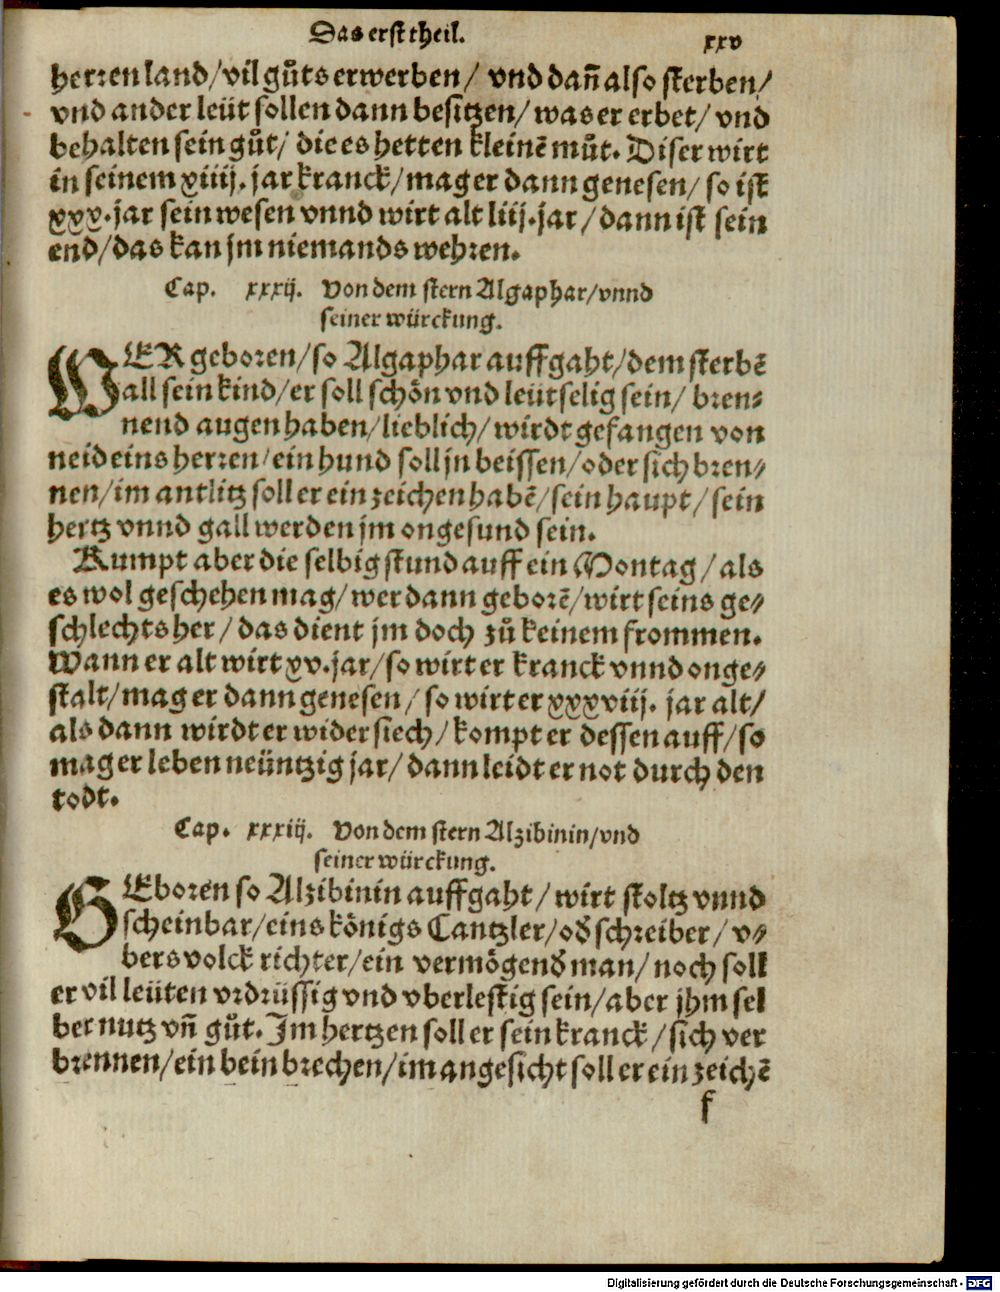 Das erst theil.
xxv
herren land/ vil gůts erwerben/ vnd dañ also sterben/
vnd ander leüt sollen dann besitzen/ was er erbet/ vnd
behalten sein gůt/ die es hetten kleinē můt. Diser wirt
in seinem xiiij. jar kranck/ mag er dann genesen/ so ist
xxx. jar sein wesen vnnd wirt alt liij. jar/ dann ist sein
end/ das kan jm niemands wehren.
Cap. xxxij. Von dem stern Algaphar/ vnnd
seiner würckung.
WER geboren/ so Algaphar auffgaht/ dem sterbē
all sein kind/ er soll schön vnd leütselig sein/ bren⸗
nend augen haben/ lieblich/ wirdt gefangen von
neid eins herren/ ein hund soll jn beissen/ oder sich bren⸗
nen/ im antlitz soll er ein zeichen habē/ sein haupt/ sein
hertz vnnd gall werden jm ongesund sein.
Kumpt aber die selbig stund auff ein Montag/ als
es wol geschehen mag/ wer dann geborē/ wirt seins ge⸗
schlechts her/ das dient jm doch zů keinem frommen.
Wann er alt wirt xv. jar/ so wirt er kranck vnnd onge⸗
stalt/ mag er dann genesen/ so wirt er xxxviij. jar alt/
als dann wirdt er wider siech/ kompt er dessen auff/ so
mag er leben neüntzig jar/ dann leidt er not durch den
todt.
Cap. xxxiij. Von dem stern Alzibinin/ vnd
seiner würckung.
GEboren so Alzibinin auffgaht/ wirt stoltz vnnd
scheinbar/ eins königs Cantzler/ oď schreiber/ v⸗
bers volck richter/ ein vermögenď man/ noch soll
er vil leüten vrdrüssig vnd vberlestig sein/ aber jhm sel
ber nutz vñ gůt. Im hertzen soll er sein kranck/ sich ver
brennen/ ein bein brechen/ im angesicht soll er ein zeichē
f
Digitalisierung gefördert durch die Deutsche Forschungsgemeinschaft - DFG